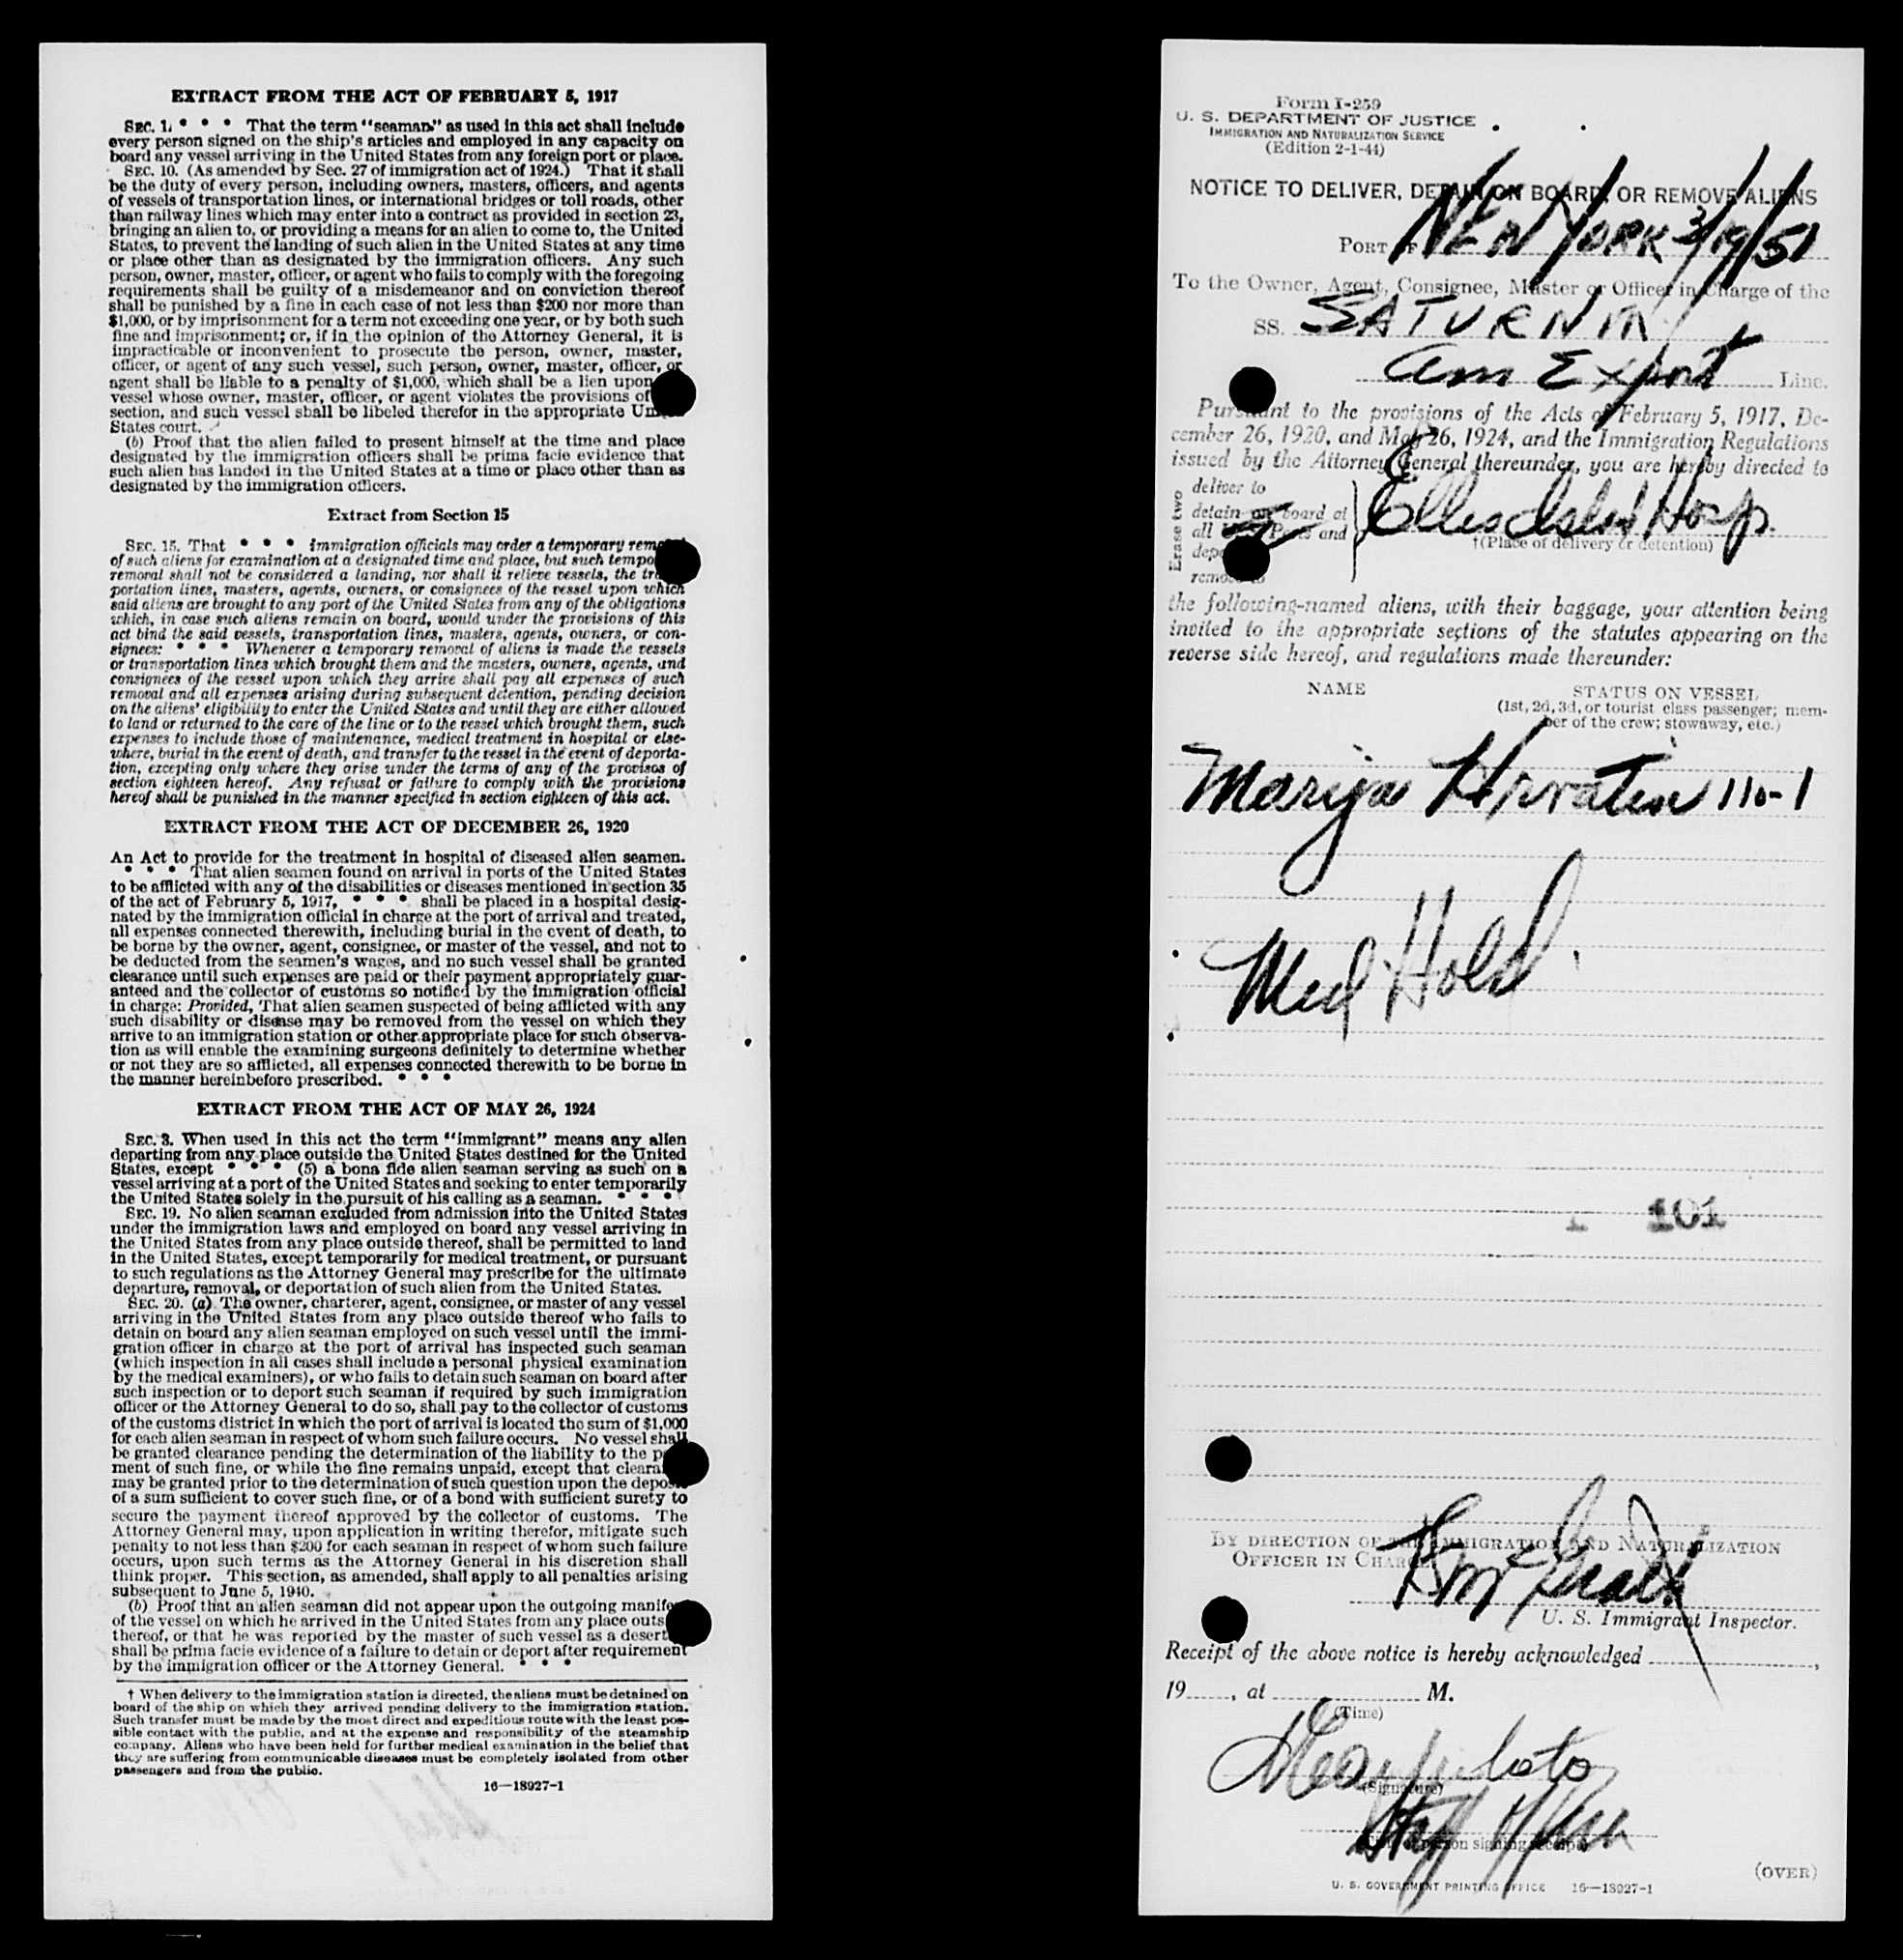 EXTRACT FROM THE ACT OF FEBRUARY 5, 1917
SEC. 1. * * * That the term "seaman" as used in this act shall include
every person signed on the ship's articles and employed in any capacity on
board any vessel arriving in the United States from any foreign port or place.
SEC. 10. (As amended by Sec. 27 of immigration act of 1924.) That it shall
be the duty of every person, including owners, masters, officers, and agents
of vessels of transportation lines, or international bridges or toll roads, other
than railway lines which may enter into a contract as provided in section 23,
bringing an alien to, or providing a means for an alien to come to, the United
States, to prevent the landing of such alien in the United States at any time
or place other than as designated by the immigration officers. Any such
person, owner, master, officer, or agent who fails to comply with the foregoing
requirements shall be guilty of a misdemeanor and on conviction thereof
shall be punished by a fine in each case of not less than $200 nor more than
$1,000, or by imprisonment for a term not exceeding one year, or by both such
fine and imprisonment; or, if in the opinion of the Attorney General, it is
impracticable or inconvenient to prosecute the person, owner, master,
officer, or agent of any such vessel, such person, owner, master, officer, or
agent shall be liable to a penalty of $1,000, which shall be a lien upon
vessel whose owner, master, officer, or agent violates the provisions of
section, and such vessel shall be libeled therefor in the appropriate United
States court.
(b) Proof that the alien failed to present himself at the time and place
designated by the immigration officers shall be prima facie evidence that
such alien has landed in the United States at a time or place other than as
designated by the immigration officers.
Extract from Section 15
SEC. 15. That * * * immigration officials may order a temporary removal
of such aliens for examination at a designated time and place, but such temporary
removal shall not be considered a landing, nor shall it relieve vessels, the trans-
portation lines, masters, agents, owners, or consignees of the vessel upon which
said aliens are brought to any port of the United States from any of the obligations
which, in case such aliens remain on board, would under the provisions of this
act bind the said vessels, transportation lines, masters, agents, owners, or con-
signees: * * * Whenever a temporary removal of aliens is made the vessels
or transportation lines which brought them and the masters, owners, agents, and
consignees of the vessel upon which they arrive shall pay all expenses of such
removal and all expenses arising during subsequent detention, pending decision
on the aliens' eligibility to enter the United States and until they are either allowed
to land or returned to the care of the line or to the vessel which brought them, such
expenses to include those of maintenance, medical treatment in hospital or else-
where, burial in the event of death, and transfer to the vessel in the event of deporta-
tion, excepting only where they arise under the terms of any of the provisos of
section eighteen hereof. Any refusal or failure to comply with the provisions
hereof shall be punished in the manner specified in section eighteen of this act.
EXTRACT FROM THE ACT OF DECEMBER 26, 1920
An Act to provide for the treatment in hospital of diseased alien seamen.
* * * That alien seamen found on arrival in ports of the United States
to be afflicted with any of the disabilities or diseases mentioned in section 35
of the act of February 5, 1917, * * * shall be placed in a hospital desig-
nated by the immigration official in charge at the port of arrival and treated,
all expenses connected therewith, including burial in the event of death, to
be borne by the owner, agent, consignee, or master of the vessel, and not to
be deducted from the seamen's wages, and no such vessel shall be granted
clearance until such expenses are paid or their payment appropriately guar-
anteed and the collector of customs so notified by the immigration official
in charge: Provided, That alien seamen suspected of being afflicted with any
such disability or disease may be removed from the vessel on which they
arrive to an immigration station or other appropriate place for such observa-
tion as will enable the examining surgeons definitely to determine whether
or not they are so afflicted, all expenses connected therewith to be borne in
the manner hereinbefore prescribed. * * *
EXTRACT FROM THE ACT OF MAY 26, 1924
SEC. 3. When used in this act the term "immigrant" means any alien
departing from any place outside the United States destined for the United
States, except * * * (5) a bona fide alien seaman serving as such on a
vessel arriving at a port of the United States and seeking to enter temporarily
the United States solely in the pursuit of his calling as a seaman. * * *
SEC. 19. No alien seaman excluded from admission into the United States
under the immigration laws and employed on board any vessel arriving in
the United States from any place outside thereof, shall be permitted to land
in the United States, except temporarily for medical treatment, or pursuant
to such regulations as the Attorney General may prescribe for the ultimate
departure, removal, or deportation of such alien from the United States.
SEC. 20. (a) The owner, charterer, agent, consignee, or master of any vessel
arriving in the United States from any place outside thereof who fails to
detain on board any alien seaman employed on such vessel until the immi-
gration officer in charge at the port of arrival has inspected such seaman
(which inspection in all cases shall include a personal physical examination
by the medical examiners), or who fails to detain such seaman on board after
such inspection or to deport such seaman if required by such immigration
officer or the Attorney General to do so, shall pay to the collector of customs
of the customs district in which the port of arrival is located the sum of $1,000
for each alien seaman in respect of whom such failure occurs. No vessel shall
be granted clearance pending the determination of the liability to the pay-
ment of such fine, or while the fine remains unpaid, except that clearance
may be granted prior to the determination of such question upon the deposit
of a sum sufficient to cover such fine, or of a bond with sufficient surety to
secure the payment thereof approved by the collector of customs. The
Attorney General may, upon application in writing therefor, mitigate such
penalty to not less than $200 for each seaman in respect of whom such failure
occurs, upon such terms as the Attorney General in his discretion shall
think proper. This section, as amended, shall apply to all penalties arising
subsequent to June 5, 1940.
(b) Proof that an alien seaman did not appear upon the outgoing manifest
of the vessel on which he arrived in the United States from any place outside
thereof, or that he was reported by the master of such vessel as a deserter,
shall be prima facie evidence of a failure to detain or deport after requirement
by the immigration officer or the Attorney General. * * *
† When delivery to the immigration station is directed, the aliens must be detained on
board of the ship on which they arrived pending delivery to the immigration station.
Such transfer must be made by the most direct and expeditious route with the least pos-
sible contact with the public, and at the expense and responsibility of the steamship
company. Aliens who have been held for further medical examination in the belief that
they are suffering from communicable diseases must be completely isolated from other
passengers and from the public.
16—18927-1
Form I-259
U. S. DEPARTMENT OF JUSTICE
IMMIGRATION AND NATURALIZATION SERVICE
(Edition 2-1-44)
NOTICE TO DELIVER, DETAIN ON BOARD, OR REMOVE ALIENS
PORT OF NEW YORK 3/19/51
To the Owner, Agent, Consignee, Master or Officer in Charge of the
SS. SATURNIA
Am Export Line.
Pursuant to the provisions of the Acts of February 5, 1917, De-
cember 26, 1920, and May 26, 1924, and the Immigration Regulations
issued by the Attorney General thereunder, you are hereby directed to
Erase two
deliver to
detain on board at
all U. S. Ports and
deport
remove to
Ellis Island Hosp.
†(Place of delivery or detention)
the following-named aliens, with their baggage, your attention being
invited to the appropriate sections of the statutes appearing on the
reverse side hereof, and regulations made thereunder:
NAME STATUS ON VESSEL
(1st, 2d, 3d, or tourist class passenger; mem-
ber of the crew; stowaway, etc.)
Marija Hrvatin 110-1
Med Hold
101
BY DIRECTION OF THE IMMIGRATION AND NATURALIZATION
OFFICER IN CHARGE
U. S. Immigrant Inspector.
Receipt of the above notice is hereby acknowledged
19 , at M.
(Time)
(Signature)
(Title of person signing receipt)
(OVER)
U. S. GOVERNMENT PRINTING OFFICE 16—18927-1